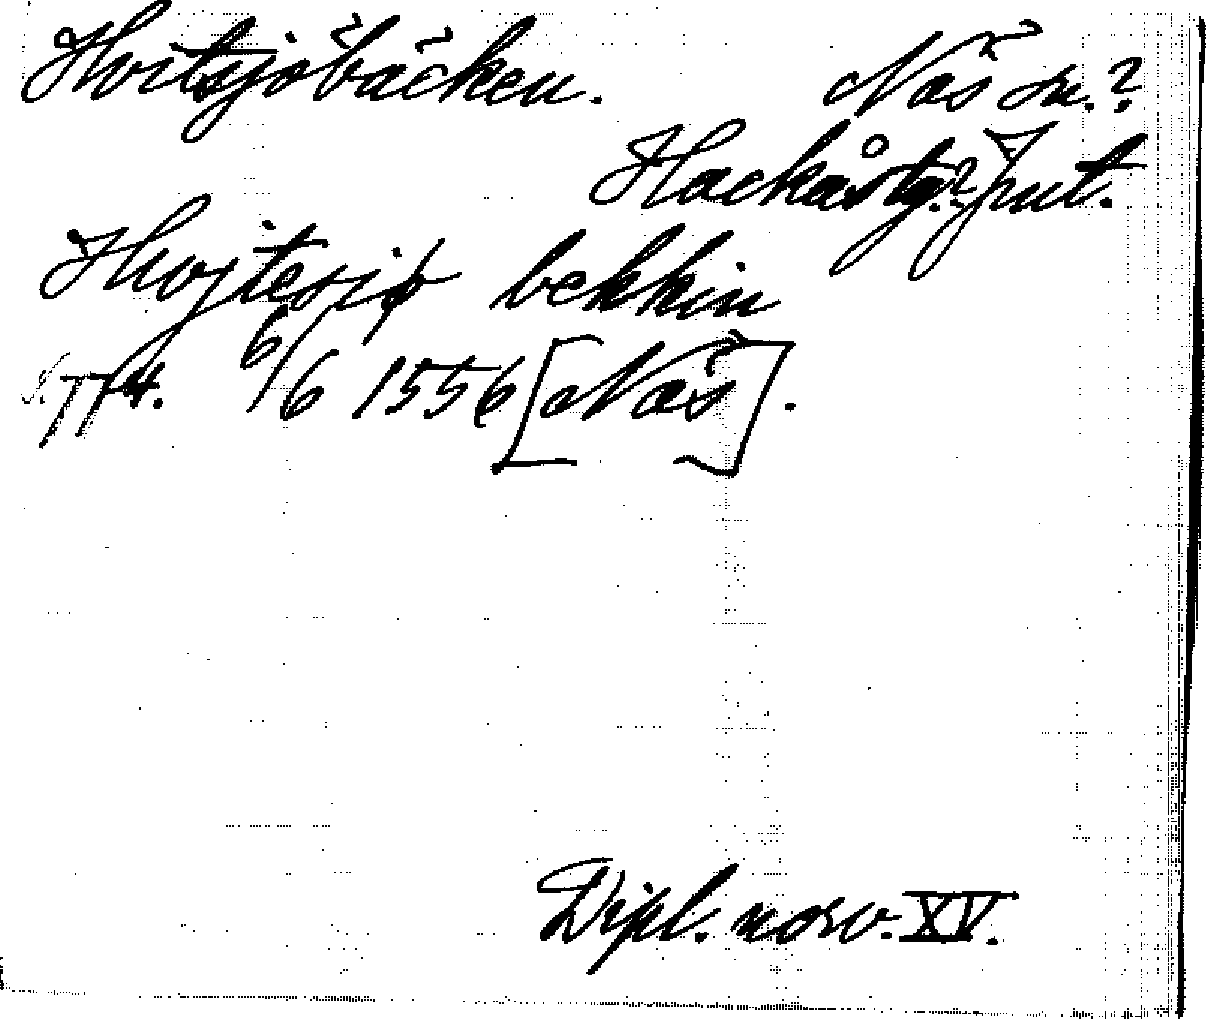 Hvitsjöbäcken. Näs sn.?
Hackås tg.? Jmt.
Hwojtesiø bekkin
s. 774. 6/6 1556 [Näs].
Dipl. norv. XV.